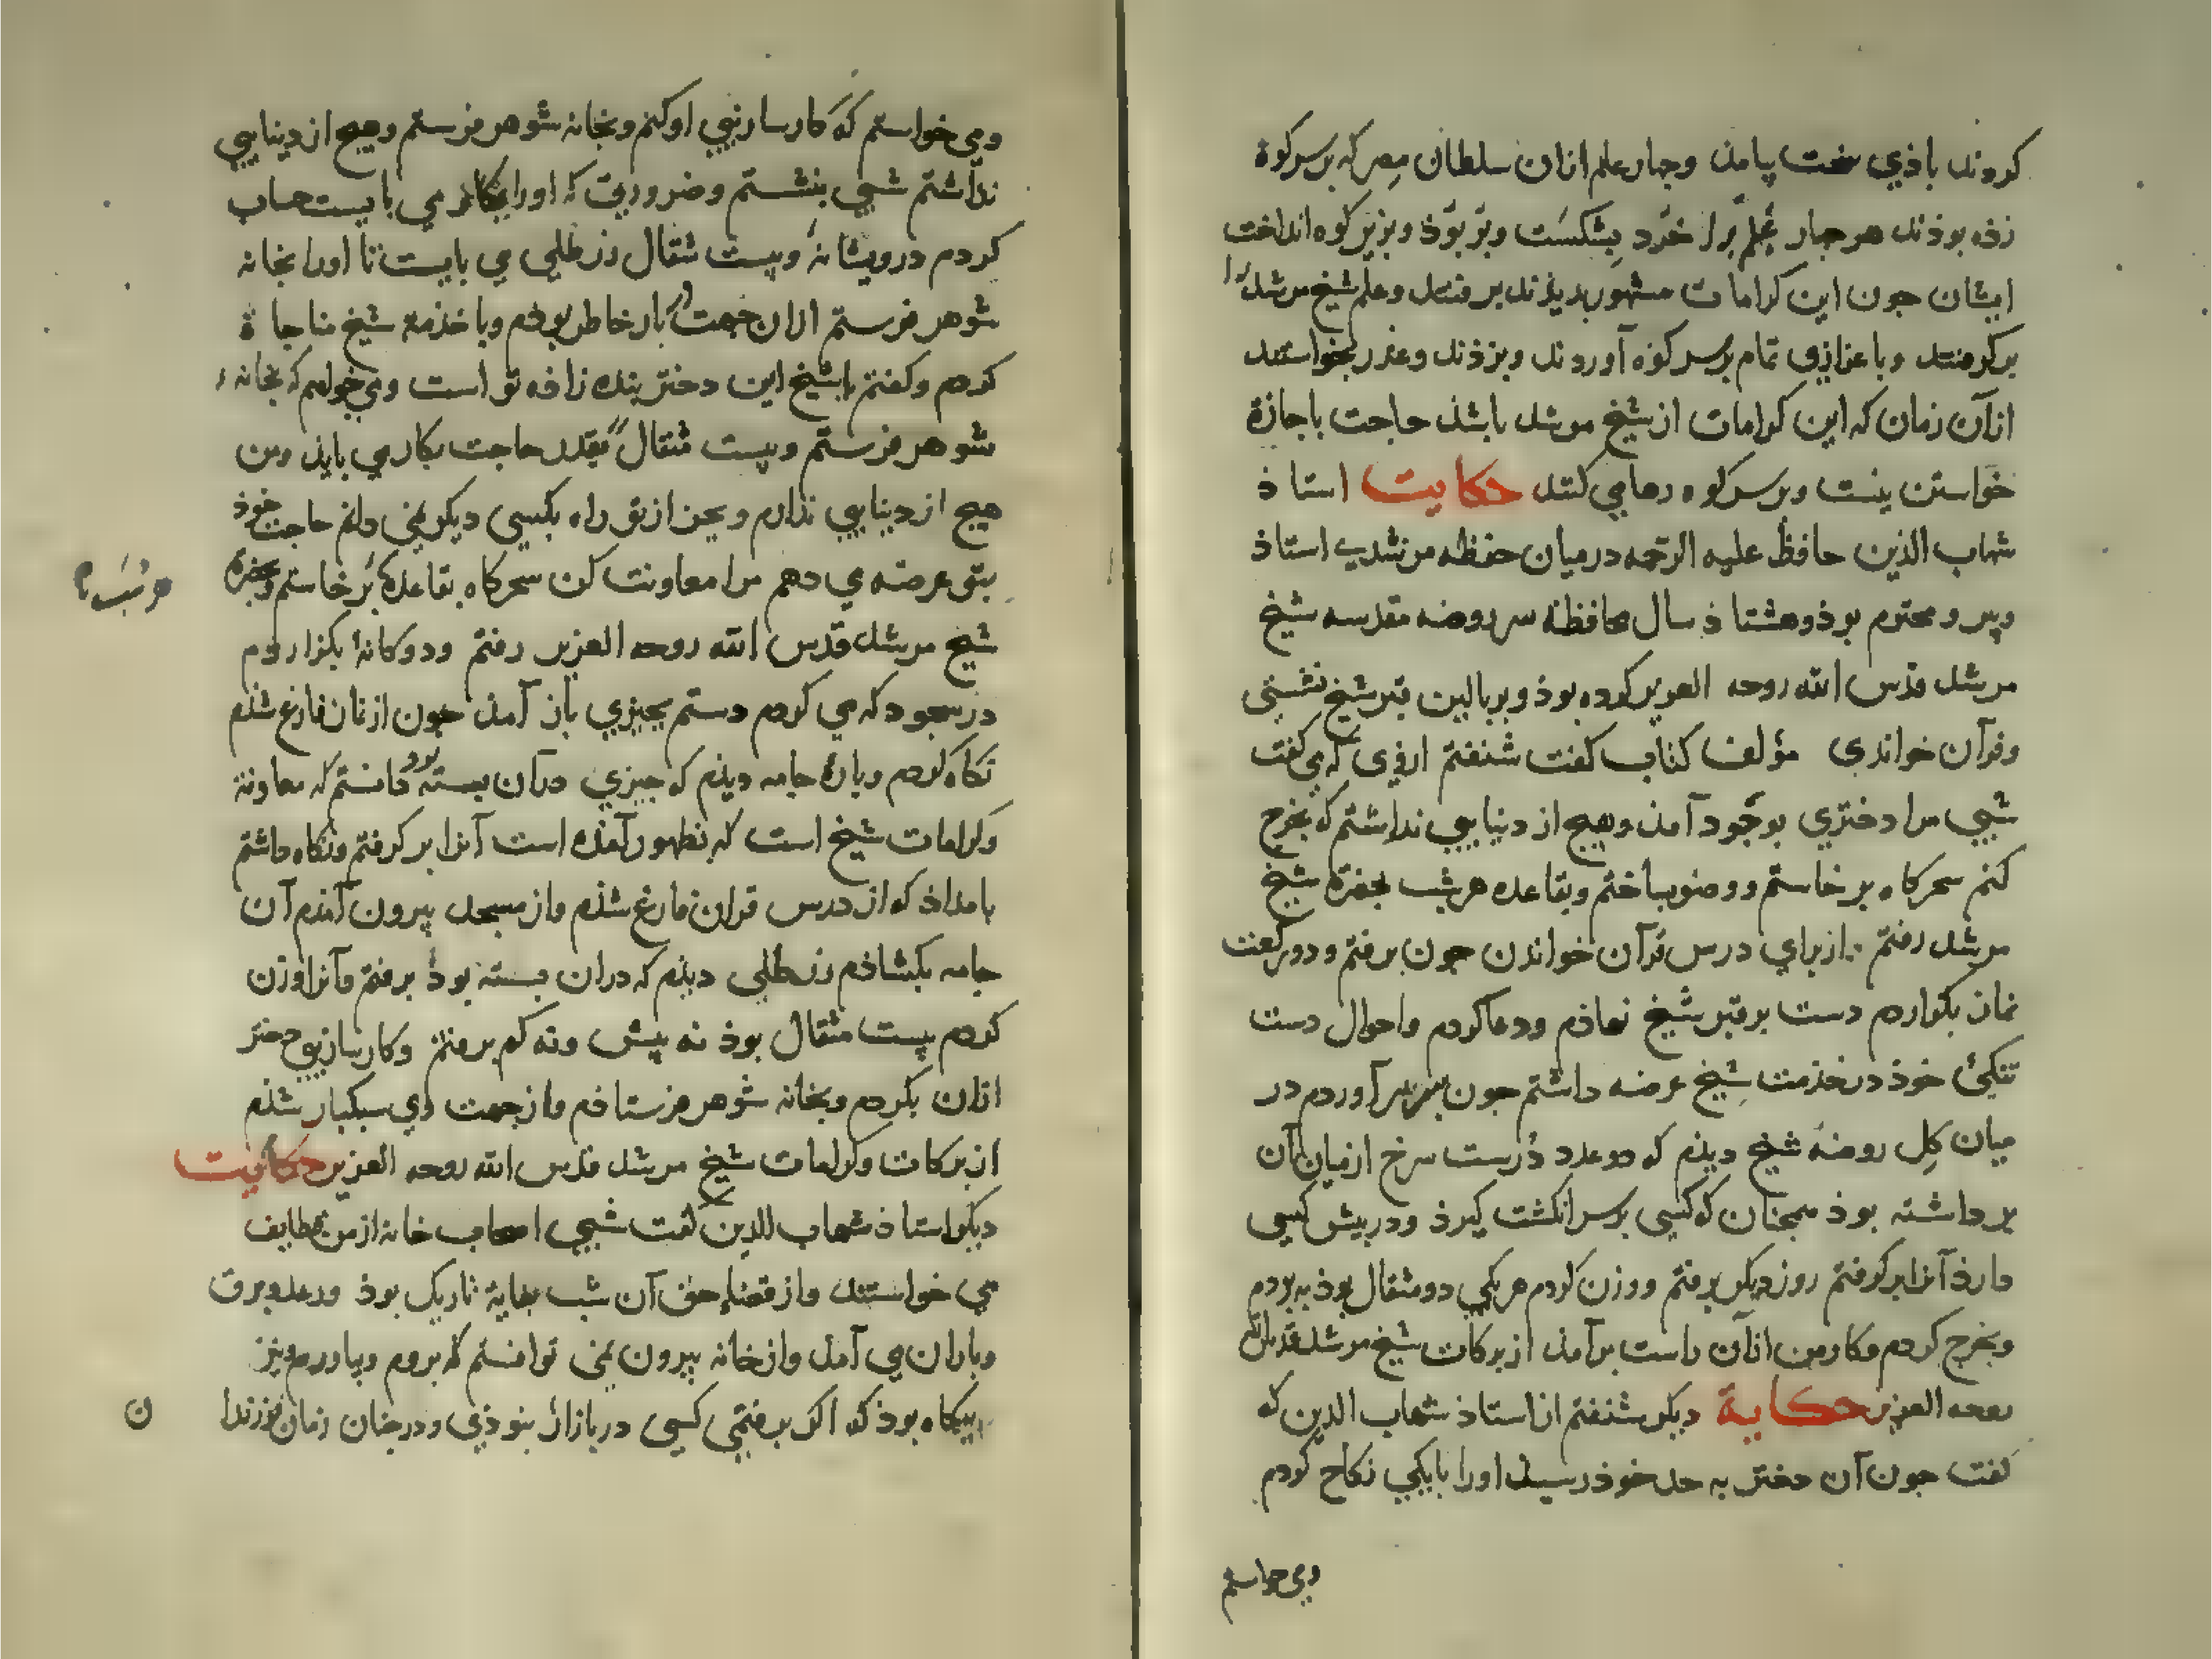 کردند باذی سخت پیامد وجهار علم ازان سلطان مصر که برسر کوه
زده بودند هر جهار علم را خرد بشکست وببرد و بزیر کوه انداخت
ایشان جون این کرامات مشهور بدیذند برفتند وعلم شیخ مرشد را
برکرفتند وباعزازی تمام برسر کوه آوردند وبزدند وعذر بخواستند
ازآن زمان که این کرامات از شیخ مرشد باشذ حاجت باجازة
خواستن نیست وبرسر کوه رها می کنند حکایت استاذ
شهاب الدین حافظ علیه الرحمه درمیان حفظه مرشدی استاذ
وپیر و محترم بوذ وهشتاذ سال محافظة سر روضه مقدسه شیخ
مرشد قدس الله روحه العزیز کرده بوذ و بربالین قبر شیخ نشستی
وقرآن خواندی مؤلف کتاب کفت شنفتم ازوی که می کفت
شبی مرا دختری بوجود آمد وهیج از دنیایی نداشتم که بخرج
کنم سحرکاه برخاستم ووضو بساختم وبقاعده هرشب بحضرة شیخ
مرشد رفتم ازبرای درس قرآن خواندن جون برفتم و دو رکعت
نماز بکزاردم دست برقبر شیخ نهاذم ودعا کردم واحوال دست
تنکی خوذ درخدمت شیخ عرضه داشتم جون سر برآوردم در
میان کل روضه شیخ دیذم که دو عدد درست سرخ ازمیان آن
برداشته بوذ همجنان که کسی برسر انکشت کیرذ ودرپیش کسی
دارذ آنرا برکرفتم روز دیکر برفتم ووزن کردم هریکی دو مثقال بوذ ببردم
وبخرج کردم وکار من ازآن راست برآمد از برکات شیخ مرشد قدس الله
روحه العزیز حکایة دیکر شنفتم از استاذ شهاب الدین که
کفت جون آن دختر به حد خوذ رسید اورا بایکی نکاح کردم
ومی خواستم
ومی خواستم که کارسازیی اوکنم وبخانه شوهر فرستم وهیج از دنیایی
نداشتم شبی بنشستم وضروریت که اورا بکار می بایست حساب
کردم درویشانه وبیست مثقال زر طلی می بایست تا اورا بخانه
شوهر فرستم ازان جهت بار خاطر بوذم وباخدمة شیخ مناجاة
کردم وکفتم یا شیخ این دختر بنده زاده تو است ومی خواهم که بخانه
شوهر فرستم وبیست مثقال نقد حاجت بکار می بایذ ومن
هیج از دنیایی ندارم وبجز از تو راه بکسی دیکر نمی دانم حاجت خوذ
بتو عرضه می دهم مرا معاونت کن سحرکاه بقاعده برخاستم وبحضرة
هر شب
شیخ مرشد قدس الله روحه العزیز رفتم ودوکانه بکزاردم
درسجود که می کردم دستم بجیزی باز آمد جون ازنماز فارغ شذم
نکاه کردم وپاره جامه دیذم که جیزی درآن بسته بود دانستم که معاونة
وکرامات شیخ است که بظهور آمذه است آنرا برکرفتم ونکاه داشتم
بامداذ که از درس قران فارغ شذم واز مسجد بیرون آمذم آن
جامه بکشاذم زر طلی دیذم که دران بسته بوذ برفتم وآنرا وزن
کردم بیست مثقال بوذ نه بیش ونه کم برفتم وکارسازیی دختر
ازان بکردم وبخانه شوهر فرستاذم واز جهت وی سبکبار شذم
از برکات وکرامات شیخ مرشد قدس الله روحه العزیز حکایت
دیکر استاذ شهاب الدین کفت شبی اصحاب خانه ازمن قطایف
می خواستند واز قضاء حق آن شب بغایة تاریک بوذ ورعد وبرق
وباران می آمد واز خانه بیرون نمی توانستم که بروم وبیاورم ونیز
بیکاه بوذ که اکر برفتمی کسی دربازار نبوذی ودرجنان زمان فرزندان